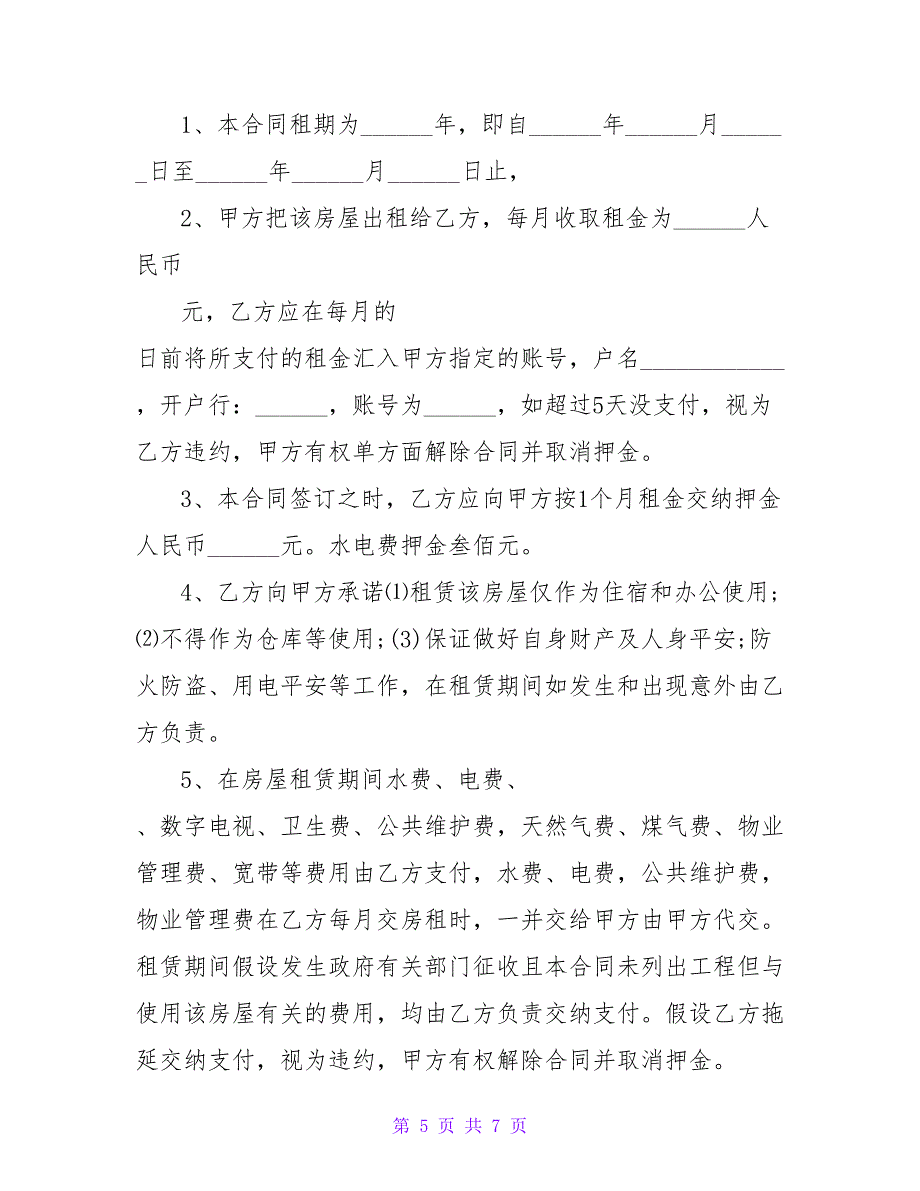 1、本合同租期为______年，即自______年______月_____
_日至______年______月______日止，
2、甲方把该房屋出租给乙方，每月收取租金为______人
民币
元，乙方应在每月的
日前将所支付的租金汇入甲方指定的账号，户名____________
，开户行：______，账号为______，如超过5天没支付，视为
乙方违约，甲方有权单方面解除合同并取消押金。
3、本合同签订之时，乙方应向甲方按1个月租金交纳押金
人民币______元。水电费押金叁佰元。
4、乙方向甲方承诺⑴租赁该房屋仅作为住宿和办公使用;
⑵不得作为仓库等使用;(3)保证做好自身财产及人身平安;防
火防盗、用电平安等工作，在租赁期间如发生和出现意外由乙
方负责。
5、在房屋租赁期间水费、电费、
、数字电视、卫生费、公共维护费，天然气费、煤气费、物业
管理费、宽带等费用由乙方支付，水费、电费，公共维护费，
物业管理费在乙方每月交房租时，一并交给甲方由甲方代交。
租赁期间假设发生政府有关部门征收且本合同未列出工程但与
使用该房屋有关的费用，均由乙方负责交纳支付。假设乙方拖
延交纳支付，视为违约，甲方有权解除合同并取消押金。
第 5 页 共 7 页